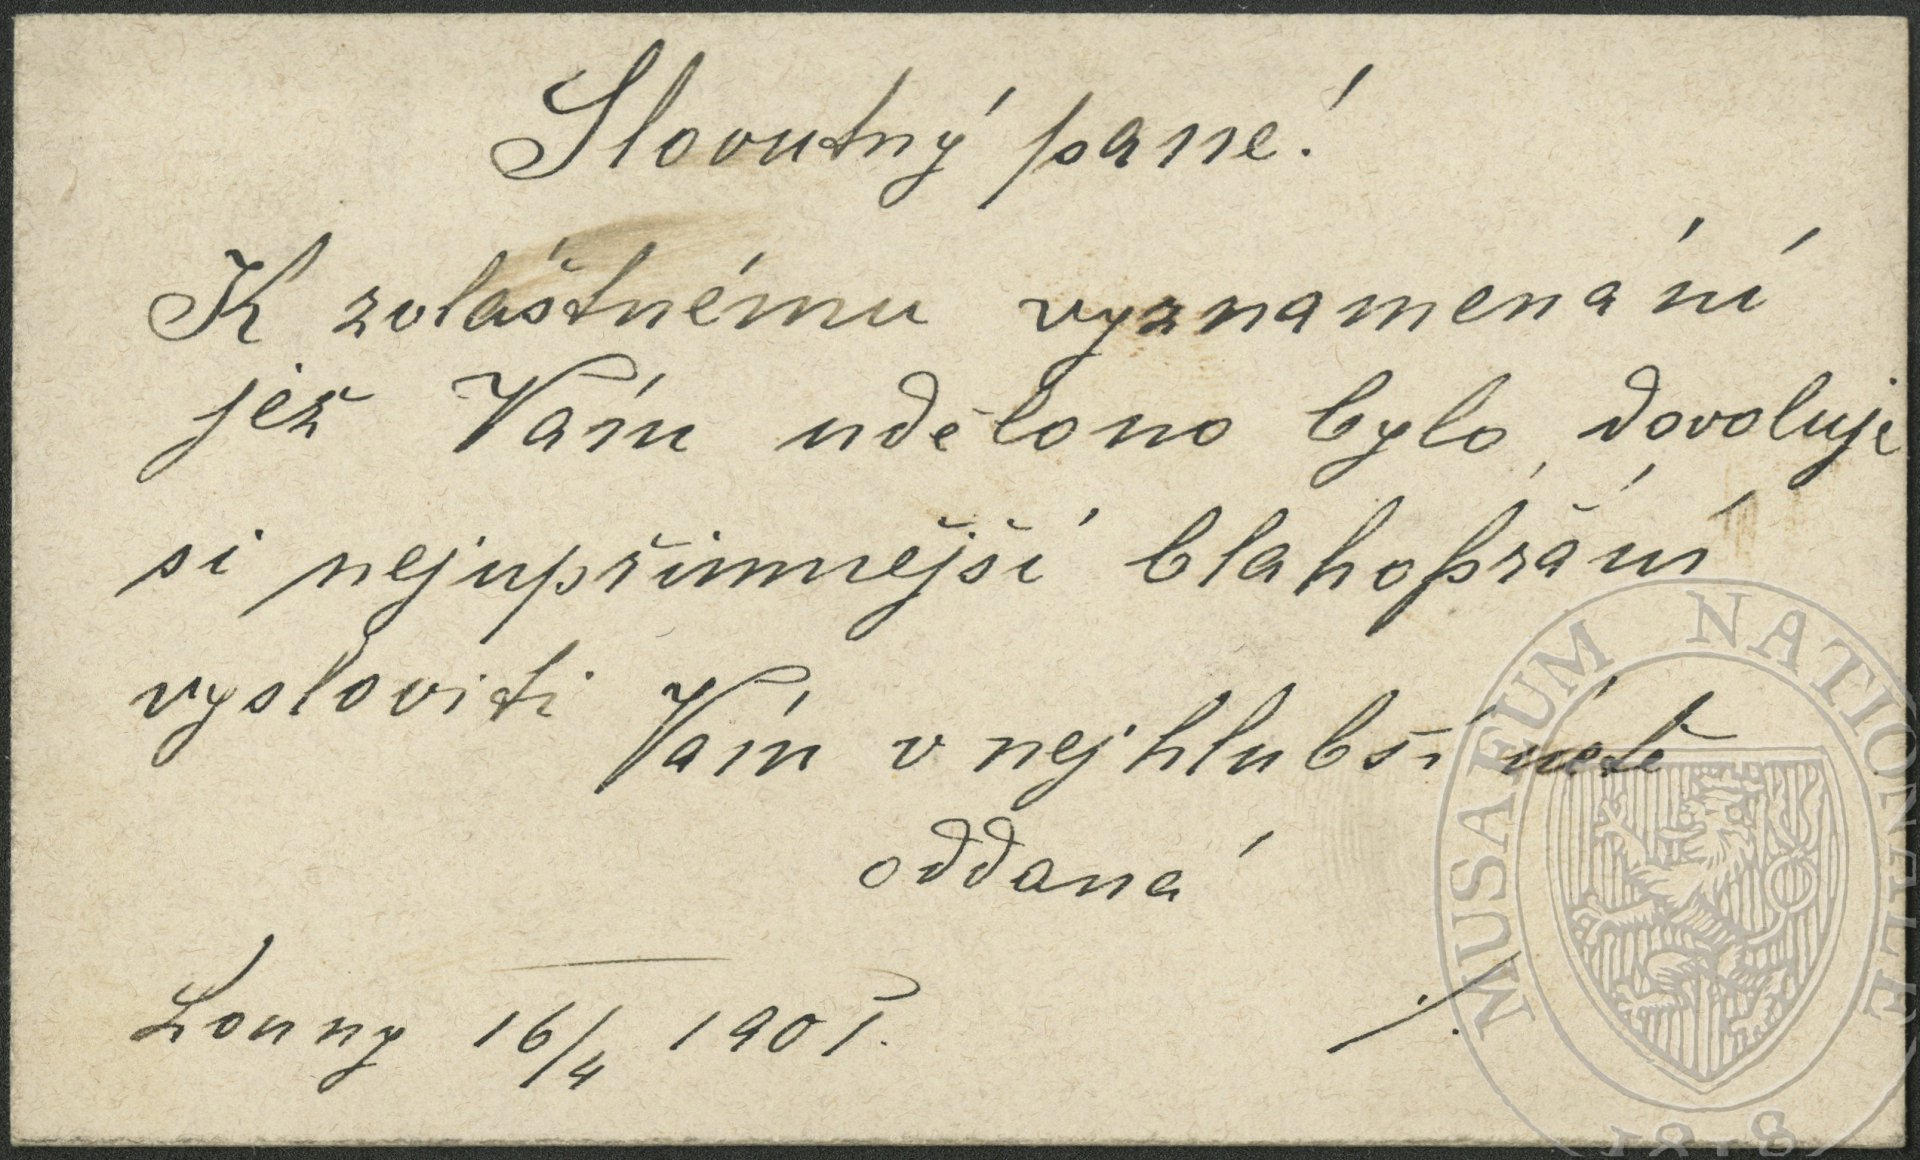 Slovutný pane!
K zvláštnému vyznamenání
jež Vám uděleno bylo, dovoluje
si nejupřimnější blahopřání
vysloviti Vám v nejhlubší úctě
oddaná
Louny 16/4 1901.
MUSAEUM NATIONALE
1818